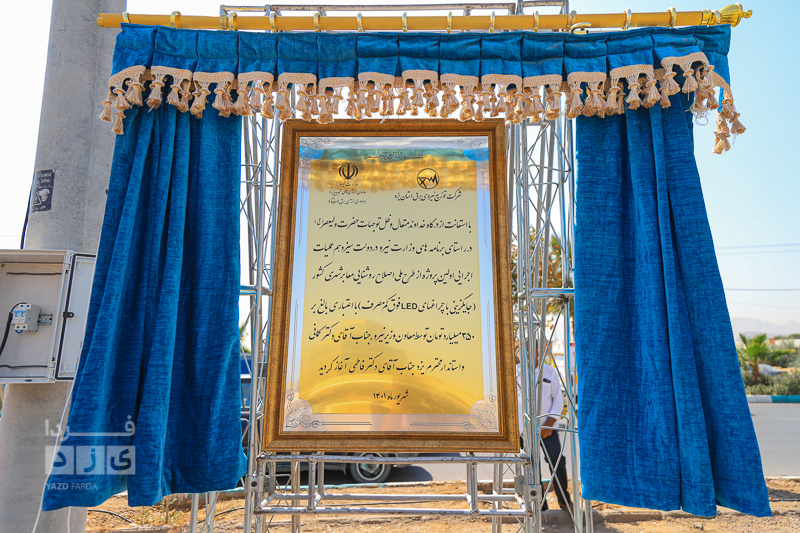 شرکت توزیع نیروی برق استان یزد
با استعانت از درگاه خداوند متعال و ظل توجهات حضرت ولیعصر (ع)
در راستای برنامه های وزارت نیرو در دولت سیزدهم عملیات
اجرایی اولین پروژه از طرح ملی اصلاح روشنایی معابر شهری کشور
(جایگزینی با چراغهای LED فوق کم مصرف) با اعتباری بالغ بر
۳۵۰ میلیارد تومان توسط معاون وزیر نیرو جناب آقای دکتر
و استاندار محترم یزد جناب آقای دکتر فاطمی آغاز گردید
شهریور ماه ۱۴۰۱
فردا
یزد
YAZD FARDA
فردا
یزد
YAZD FARDA